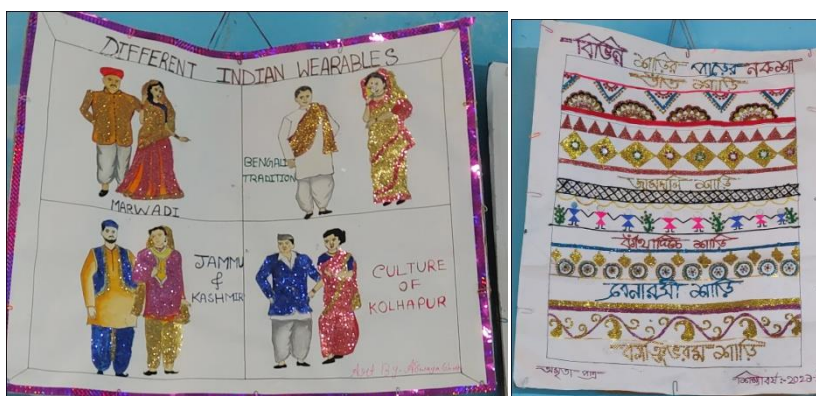 DIFFERENT INDIAN WEARABLES
MARWADI
BENGALI
TRADITION
JAMMU
&
KASHMIR
CULTURE
OF
KOLHAPUR
বিভিন্ন শাড়ির পাড়ের নকশা
তাঁত শাড়ি
জামদানি শাড়ি
কাঁথাস্টিচ শাড়ি
বেনারসী শাড়ি
শাড়ি
শিক্ষাবর্ষ:-২০২৩